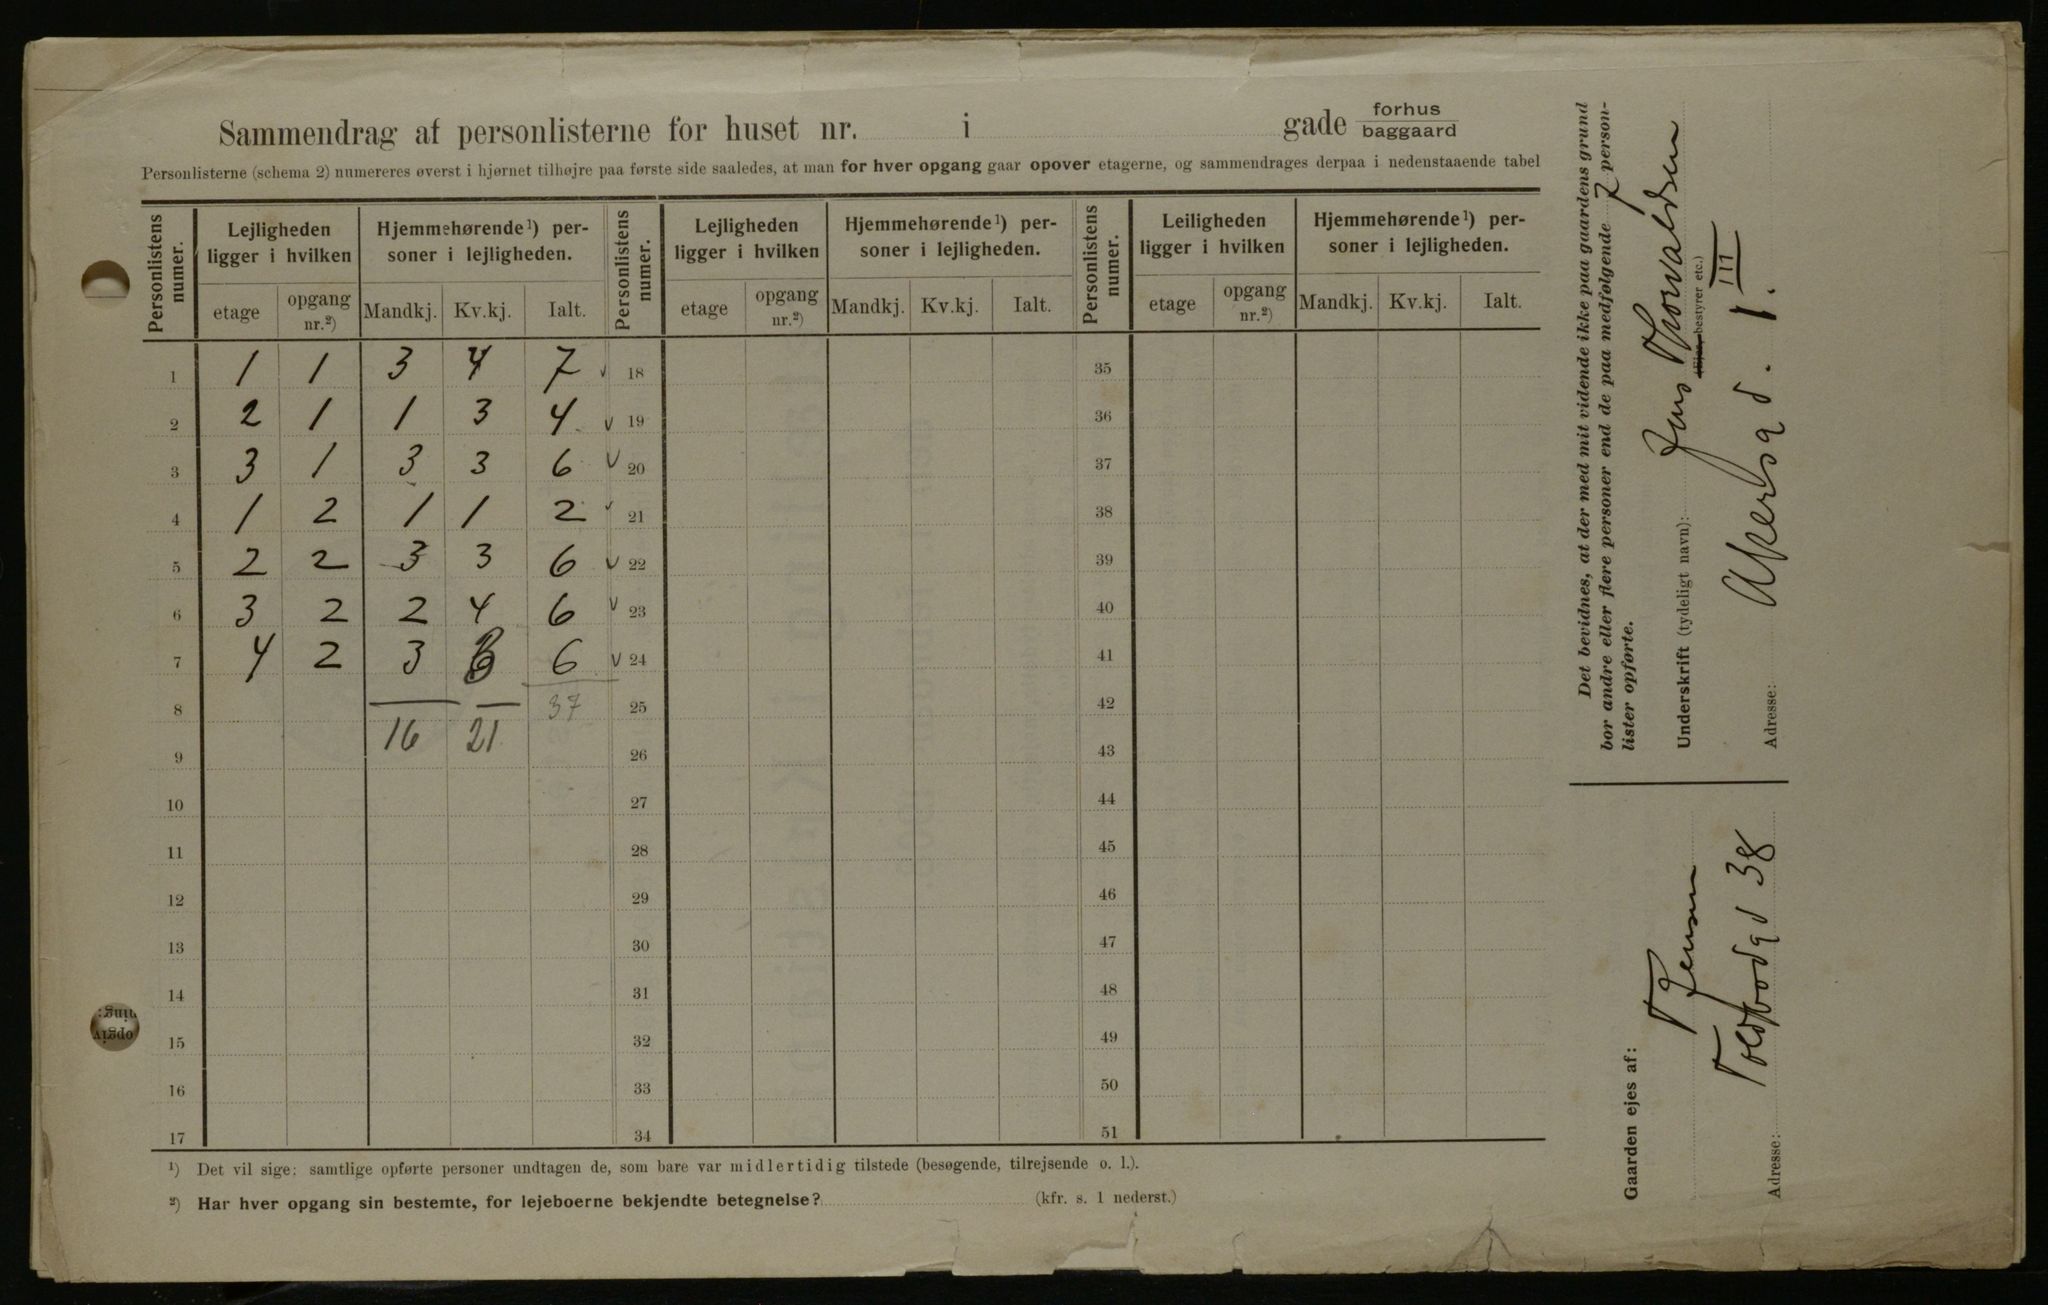 Sammendrag af personlisterne for huset nr. i gade forhus
baggaard
Personlisterne (schema 2) numereres øverst i hjørnet tilhøjre paa første side saaledes, at man for hver opgang gaar opover etagerne, og sammendrages derpaa i nedenstaaende tabel
Personlistens numer. Lejligheden ligger i hvilken Hjemmehørende¹) personer i lejligheden. Personlistens numer. Lejligheden ligger i hvilken Hjemmehørende¹) personer i lejligheden. Personlistens numer. Leiligheden ligger i hvilken Hjemmehørende¹) personer i lejligheden.
etage opgang nr.²) Mandkj. Kv.kj. Ialt. etage opgang nr.²) Mandkj. Kv.kj. Ialt. etage opgang nr.²) Mandkj. Kv.kj. Ialt.
1 1 1 3 4 7 v 18 35
2 2 1 1 3 4 v 19 36
3 3 1 3 3 6 v 20 37
4 1 2 1 1 2 v 21 38
5 2 2 3 3 6 v 22 39
6 3 2 2 4 6 v 23 40
7 4 2 3 3 6 v 24 41
8 37 25 42
9 16 21 26 43
10 27 44
11 28 45
12 29 46
13 30 47
14 31 48
15 32 49
16 33 50
17 34 51
¹) Det vil sige: samtlige opførte personer undtagen de, som bare var midlertidig tilstede (besøgende, tilrejsende o. l.).
²) Har hver opgang sin bestemte, for lejeboerne bekjendte betegnelse? (kfr. s. 1 nederst.)
Det bevidnes, at der med mit vidende ikke paa gaardens grund
bor andre eller flere personer end de paa medfølgende 7 person-
lister opførte.
Underskrift (tydeligt navn): Jens Thorvaldsen
(Ejer, bestyrer etc.)
Adresse: Akersgd. 1. III
Gaarden ejes af: T Jensen
Adresse: Toldbodgd 38
opgiv
ning: